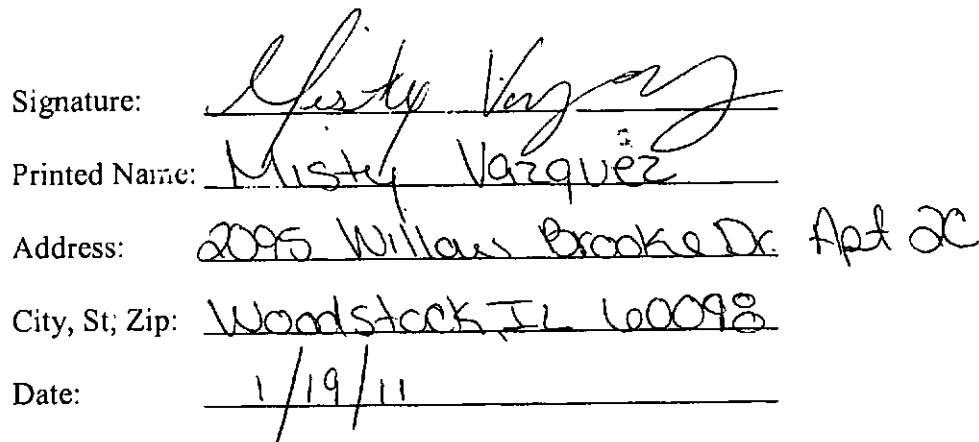 Signature: Misty Vazquez
Printed Name: Misty Vazquez
Address: 2095 Willow Brooke Dr. Apt 2C
City, St; Zip: Woodstock, IL 60098
Date: 1/19/11